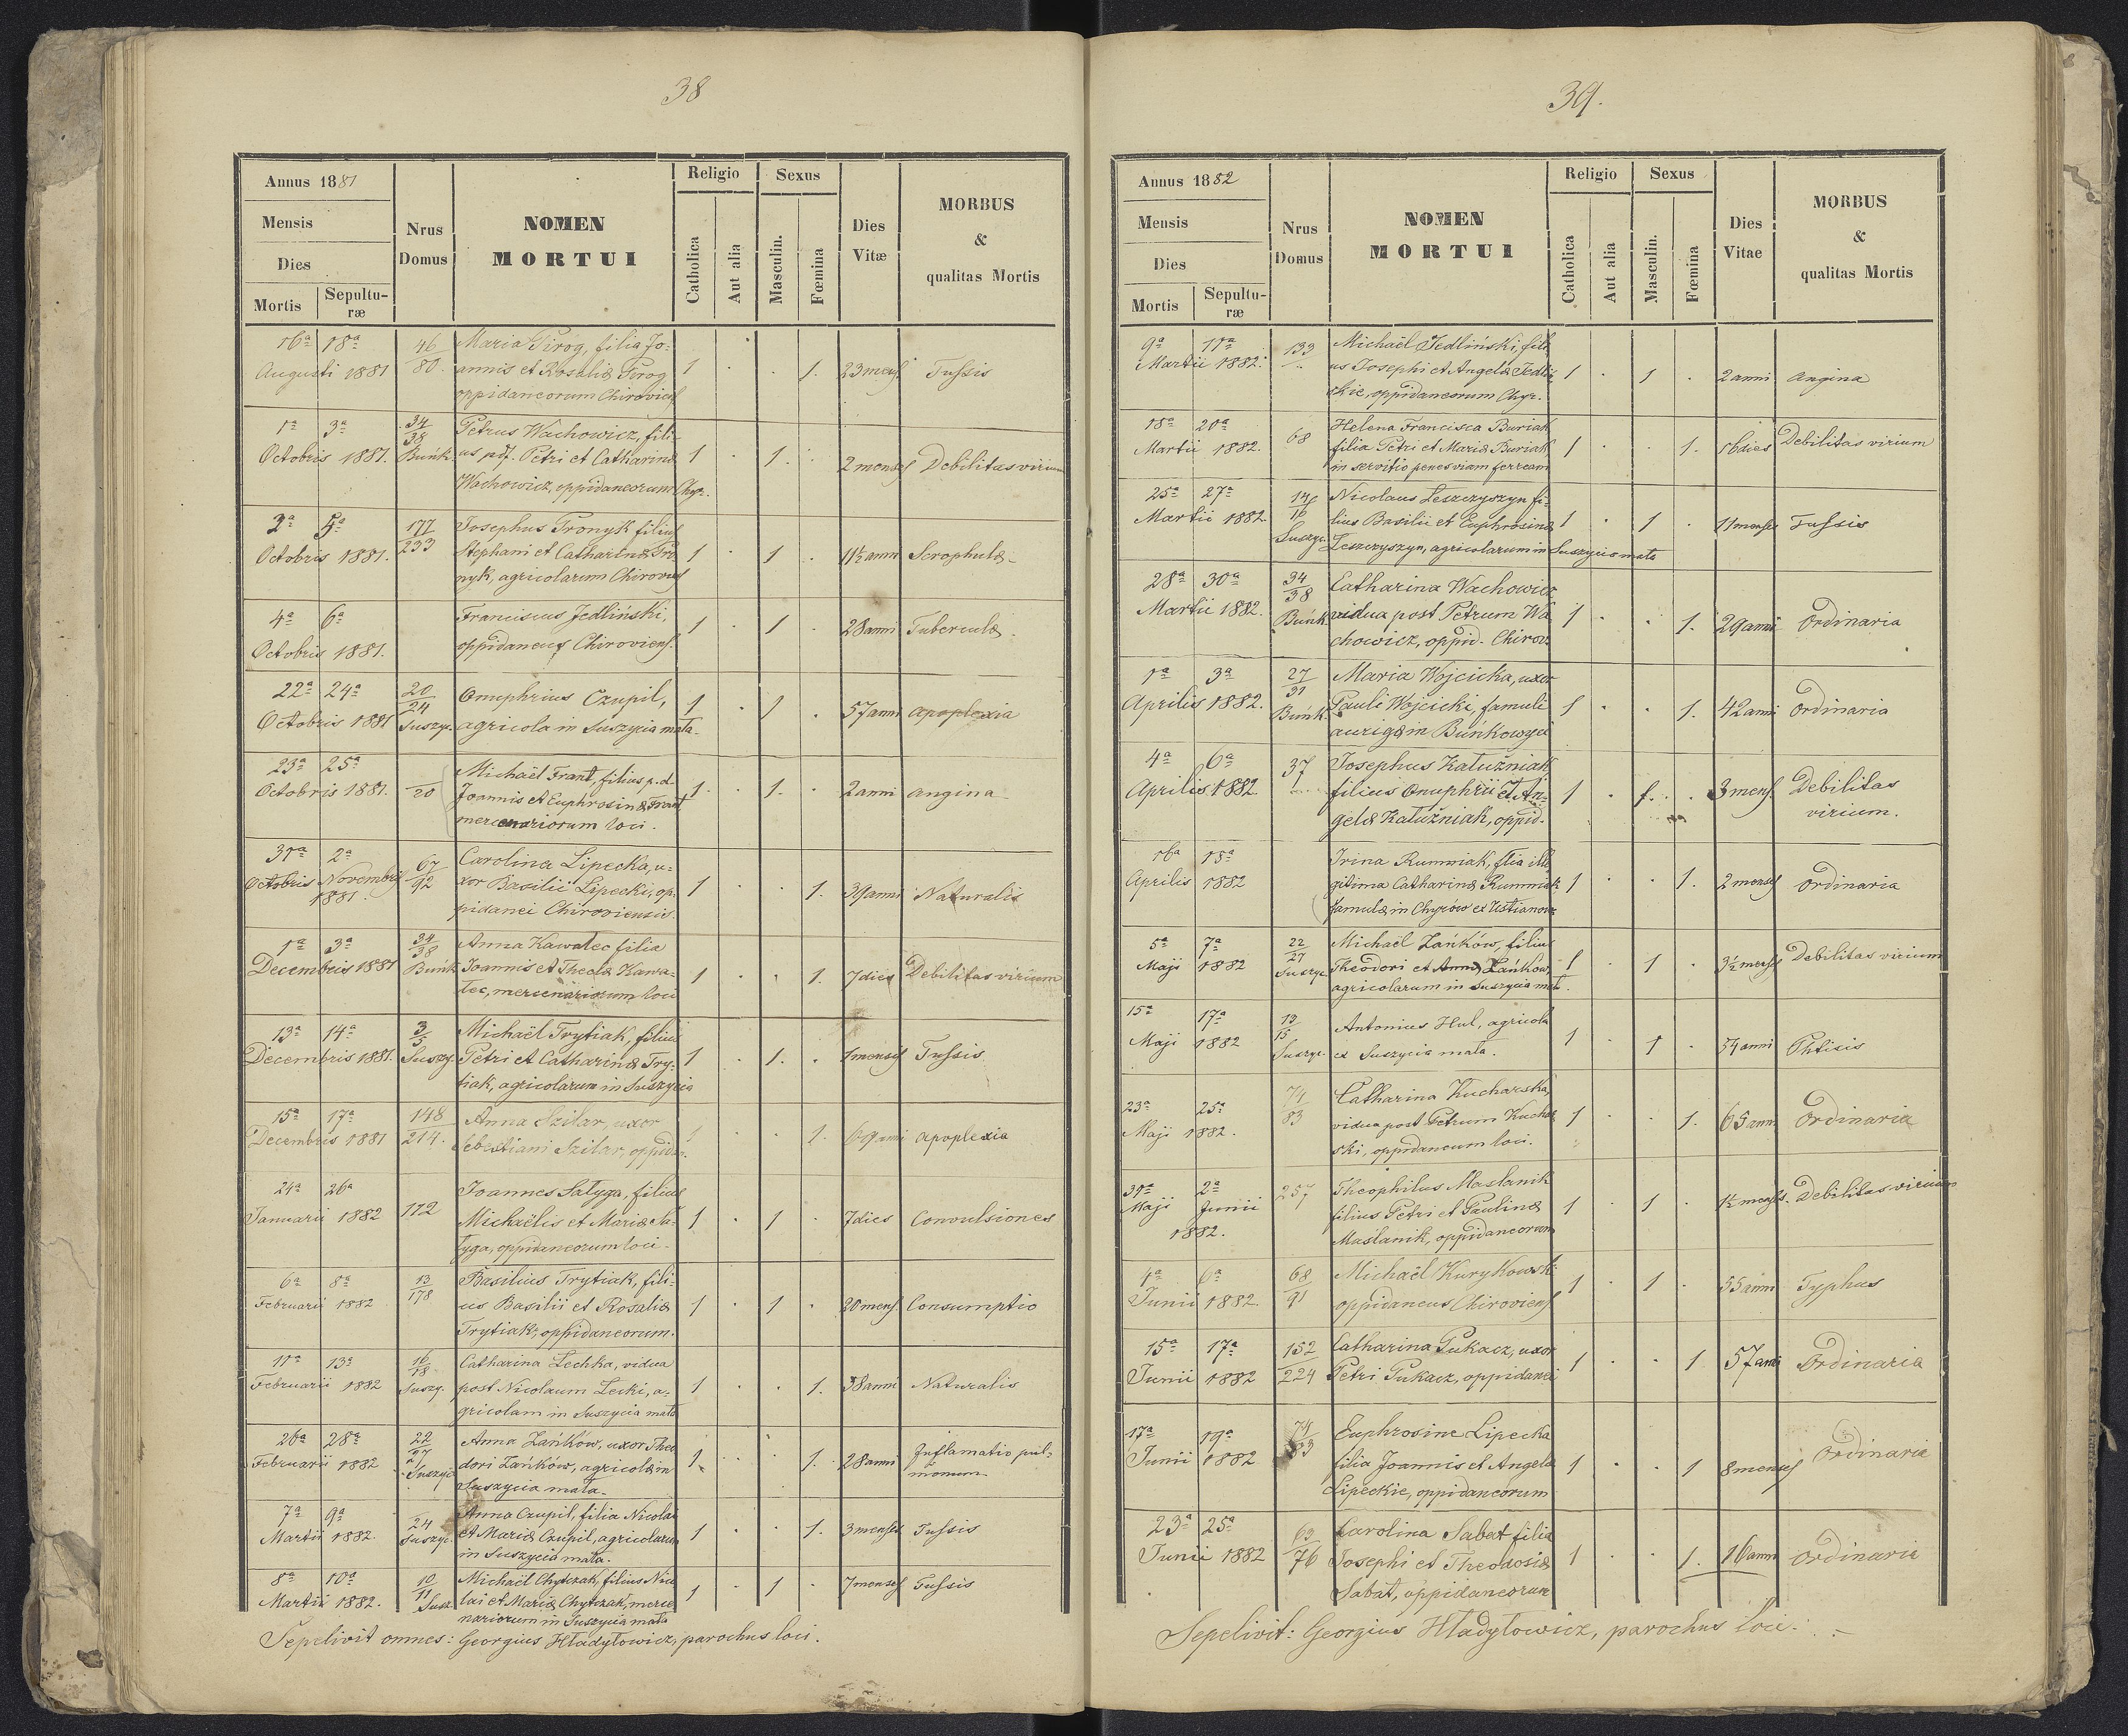 38
Annus 1881
Mensis
Dies
Mortis
Sepultu-
ræ
Nrus
Domus
NOMEN
MORTUI
Religio
Catholica
Aut alia
Sexus
Masculin.
Fœmina
Dies
Vitæ
MORBUS
&
qualitas Mortis
16ª 18ª 46 Maria Pirog, filia Jo-
Augusti 1881 80. annis et Rosaliæ Pirog 1 . . 1. 23 mens. Tussis
oppidaneorum Chiroviens
1ª 3ª 34 Petrus Wachowicz, fili-
38
Octobris 1881. Buńk. us pdf. Petri et Catharinæ 1 . 1. . 2 menses Debilitas virium
Wachowicz, oppidaneorum Chyr.
2ª 5ª 177 Josephus Pronyk filius
Octobris 1881. 233 Stephani et Catharinæ Pro 1 . 1 . 11½ anni Scrophulæ
nyk, agricolarum Chirovies
4ª 6ª Franciscus Jedliński, 1 . 1 . 28 anni Tuberculæ.
Octobris 1881. oppidaneus Chiroviens.
22ª 24ª 20 Onuphrius Czupil, 1 . 1 . 57 anni apoplexia
24
Octobris 1881 Suszyc. agricola in Suszycia mała.
23ª 25ª Michaël Frant, filius p. d.
Octobris 1881. 20 Joannis et Euphrosinæ Frant 1. . 1. . 2 anni angina
mercenariorum loci.
31ª 2ª 67 Carolina Lipecka, u-
Octobris Novembris 92 xor Basilii Lipecki, op- 1 . . 1. 39 anni Naturalis
1881. pidanei Chiroviensis.
1ª 3ª 34 Anna Kawalec filia
38
Decembris 1881 Buńk Joannis et Theclæ Kawa- 1 . . 1. 7 dies Debilitas virium
lec, mercenariorum loci
13ª 14ª 3 Michaël Trytiak, filius
5
Decembris 1881. Suszy. Petri et Catharinæ Try- 1 . 1. . 1 menses Tussis
tiak, agricolarum in Suszycia
15ª 17ª 148 Anna Szilar, uxor
Decembris 1881 214. Sebestiani Szilar, oppida. 1 . . 1. 69 anni apoplexia
24ª 26ª Joannes Sałyga, filius
Januarii 1882 172 Michaëlis et Mariæ Sa- 1 . 1 . 7 dies Convulsiones
łyga, oppidaneorum loci.
6ª 8ª 13 Basilius Trytiak, fili-
Februarii 1882 178 us Basilii et Rosaliæ 1 . 1 . 20 mens. Consumptio
Trytiak, oppidaneorum.
11ª 13ª 16 Catharina Lechka, vidua
18
Februarii 1882 Suszy. post Nicolaum Lecki, a- 1 . . 1. 38 anni Naturalis
gricolam in Suszycia mała
26ª 28ª 22 Anna Zańków, uxor Theo
27
Februarii 1882 Suszyc dori Zańków, agricolæ in 1. . . 1. 28 anni Inflamatio pul-
Suszycia mała. monum
7ª 9ª Anna Czupil, filia Nicolai
24
Martii 1882. Suszyc. et Mariæ Czupil, agricolarum 1 . . 1. 3 menses Tussis
in Suszycia mała.
8ª 10ª 10 Michaël Chytczak, filius Nico
11
Martii 1882. Susz. lai et Mariæ Chytczak, merce 1 . 1 . 7 menses Tussis
nariorum in Suszycia mała
Sepelivit omnes: Georgius Hładyłowicz, parochus loci.
39.
Annus 1882
Mensis
Dies
Mortis
Sepultu-
ræ
Nrus
Domus
NOMEN
MORTUI
Religio
Catholica
Aut alia
Sexus
Masculin.
Fœmina
Dies
Vitae
MORBUS
&
qualitas Mortis
9ª 11ª 133 Michaël Jedliński, fili
Martii 1882. us Josephi et Angelæ Jedliń 1 . 1 . 2 anni angina
skie, oppidaneorum Chyr.
18ª 20ª Helena Francisca Buriak
Martii 1882. 68 filia Petri et Mariæ Buriak 1 . . 1. 16 dies Debilitas virium
in servitio penes viam ferream
25ª 27ª 14 Nicolaus Leszczyszyn fi-
16
Martii 1882. Suszyc. lius Basilii et Euphrosinæ 1 . 1 . 11 menses Tussis
Leszczyszyn, agricolarum in Suszycia mała
28ª 30ª 34 Catharina Wachowicz
38
Martii 1882. Buńk. vidua post Petrum Wa 1 . . 1. 29 anni Ordinaria
chowicz, oppid. Chirov.
1ª 3ª 27 Maria Wojcicka, uxor
31
Aprilis 1882. Buńk. Pauli Wojcicki, famuli 1 . . 1. 42 anni Ordinaria
aurigæ in Buńkowyci
4ª 6ª 37 Josephus Kałużniak
Aprilis 1882 filius Onuphrii et An- 1 . 1. . 3 mens. Debilitas
gelæ Kałużniak, oppid. virium.
16ª 18ª Irina Rumniak, filia ille
Aprilis 1882 gitima Catharinæ Rumniak 1 . . 1. 2 menses Ordinaria
famulæ in Chyrów ex Ustianow
5ª 7ª 22 Michaël Zańków, filius
27
Maji 1882 Suszyc Theodori et Annæ Zańkow, 1 . 1 . 3½ menses Debilitas virium
agricolarum in Suszycia mała.
15ª 17ª 13 Antonius Hul, agricola
15
Maji 1882 Suszyc. ex Suszycia mała. 1 . 1 . 54 anni Phtisis
23ª 25ª 74 Catharina Kucharska,
Maji 1882. 83 vidua post Petrum Kuchar 1 . . 1. 65 anni Ordinaria
ski, oppidaneum loci.
31ª 2ª 257 Theophilus Maslanik
Maji Junii filius Petri et Paulinæ 1 . 1 . 1½ menses. Debilitas virium
1882. Maslanik, oppidaneorum
4ª 6ª 68 Michaël Kurykowski 1 . 1 . 55 anni Typhus
Junii 1882. 91 oppidaneus Chiroviens
15ª 17ª 152 Catharina Pukacz, uxor
Junii 1882 224 Petri Pukacz, oppidanei 1 . . 1 57 anni Ordinaria
17ª 19ª 74 Euphrosine Lipecka
Junii 1882 83 filia Joannis et Angela 1 . . 1 8 menses Ordinaria
Lipeckie, oppidaneorum
23ª 25ª 63 Carolina Sabat filia
Junii 1882 76 Josephi et Theodosiæ 1 . . 1. 16 anni Ordinaria
Sabat, oppidaneorum
Sepelivit: Georgius Hładyłowicz, parochus loci.